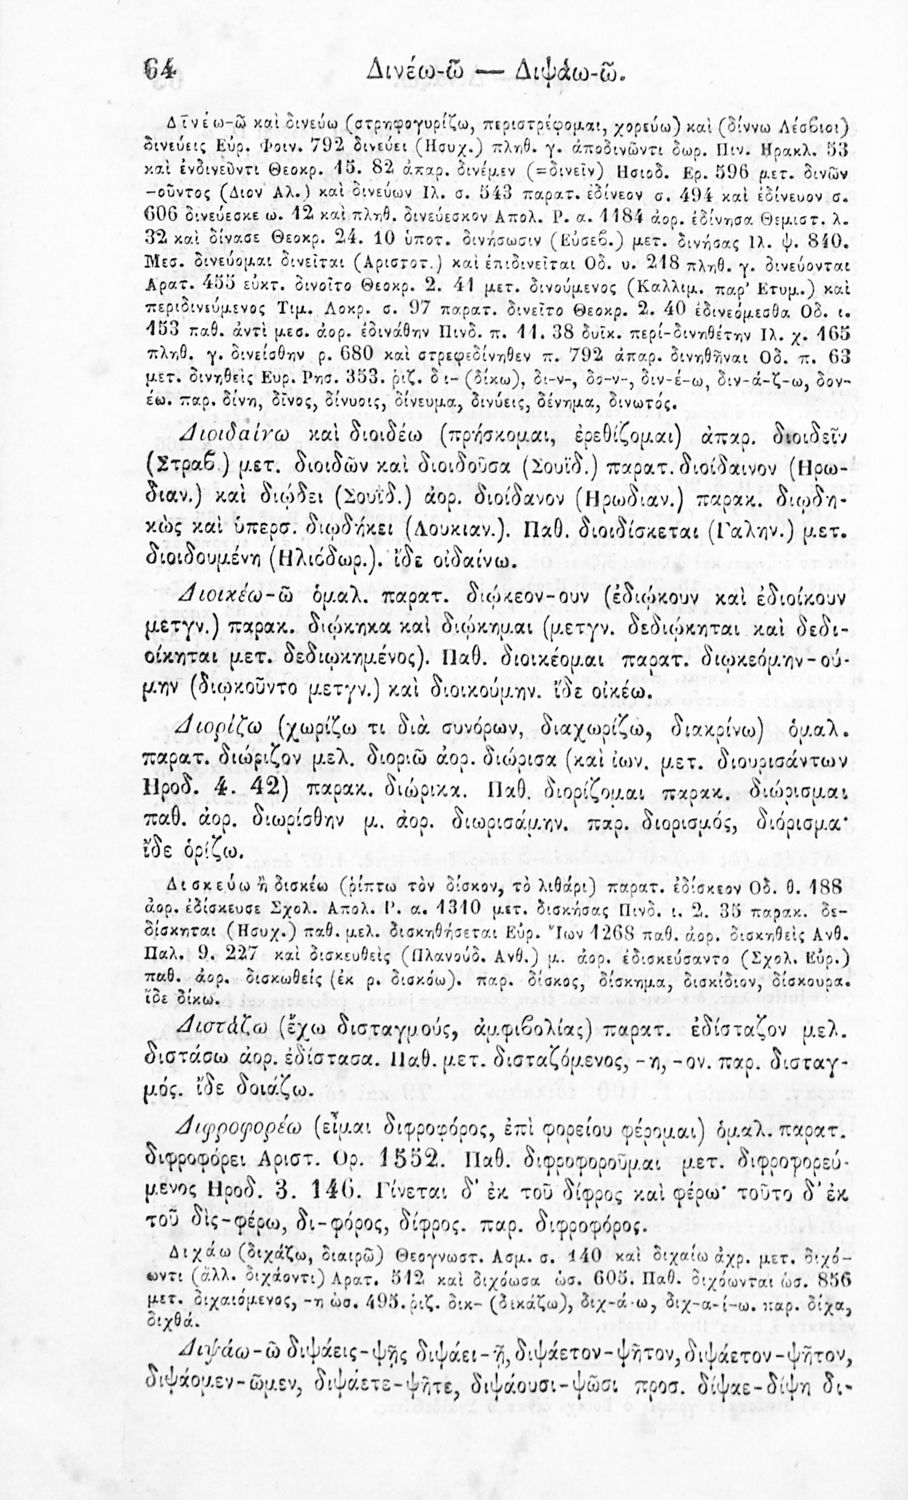 64 Δινέω-ῶ — Διψάω-ῶ.
Δῑνέω-ῶ καὶ δινεύω (στρηφογυρίζω, περιστρέφομαι, χορεύω) καὶ (δίννω Λέσϐιοι)
δινεύεις Εὐρ. Φοιν. 792 δινεύει (Ησυχ.) πληθ. γ. ἀποδινῶντι δωρ. Πιν. Ηρακλ. 53
καὶ ἐνδινεῦντι Θεοκρ. 15. 82 ἀπαρ. δινέμεν (=δινεῖν) Ησιοδ. Ερ. 596 μετ. δινῶν
-οῦντος (Διον Αλ.) καὶ δινεύων Ιλ. σ. 543 παρατ. ἐδίνεον σ. 494 καὶ ἐδίνευον σ.
606 δινεύεσκε ω. 12 καὶ πληθ. δινεύεσκον Απολ. Ρ. α. 1184 ἀορ. ἐδίνησα Θεμιστ. λ.
32 καὶ δίνασε Θεοκρ. 24. 10 ὑποτ. δινήσωσιν (Εὐσεϐ.) μετ. δινήσας Ιλ. ψ. 840.
Μεσ. δινεύομαι δινεῖται (Αριστοτ.) καὶ ἐπιδινεῖται Οδ. υ. 218 πληθ. γ. δινεύονται
Αρατ. 455 εὐκτ. δινοῖτο Θεοκρ. 2. 41 μετ. δινούμενος (Καλλιμ. παρ' Ετυμ.) καὶ
περιδινεύμενος Τιμ. Λοκρ. σ. 97 παρατ. δινεῖτο Θεοκρ. 2. 40 ἐδινεόμεσθα Οδ. ι.
153 παθ. ἀντὶ μεσ. ἀορ. ἐδινάθην Πινδ. π. 11. 38 δυϊκ. περί-δινηθέτην Ιλ. χ. 165
πληθ. γ. δινείσθην ρ. 680 καὶ στρεφεδίνηθεν π. 792 ἀπαρ. δινηθῆναι Οδ. π. 63
μετ. δινηθεὶς Ευρ. Ρησ. 353. ῥιζ. δι- (δίκω), δι-ν-, δο-ν-, διν-έ-ω, διν-ά-ζ-ω, δον-
έω. παρ. δίνη, δῖνος, δίνυσις, δίνευμα, δινύεις, δένημα, δινωτός.
Διοιδαίνω καὶ διοιδέω (πρήσκομαι, ἐρεθίζομαι) ἀπαρ. διοιδεῖν
(Στραϐ.) μετ. διοιδῶν καὶ διοιδοῦσα (Σουϊδ.) παρατ. διοίδαινον (Ηρω-
διαν.) καὶ διῴδει (Σουϊδ.) ἀορ. διοίδανον (Ηρωδιαν.) παρακ. διῳδη-
κὼς καὶ ὑπερσ. διῳδήκει (Λουκιαν.). Παθ. διοιδίσκεται (Γαλην.) μετ.
διοιδουμένη (Ηλιόδωρ.). ἴδε οἰδαίνω.
Διοικέω-ῶ ὁμαλ. παρατ. διῴκεον-ουν (ἐδιῴκουν καὶ ἐδιοίκουν
μετγν.) παρακ. διῴκηκα καὶ διῴκημαι (μετγν. δεδιῴκηται καὶ δεδι-
οίκηται μετ. δεδιῳκημένος). Παθ. διοικέομαι παρατ. διῳκεόμην-ού-
μην (διῳκοῦντο μετγν.) καὶ διοικούμην. ἴδε οἰκέω.
Διορίζω (χωρίζω τι διὰ συνόρων, διαχωρίζω, διακρίνω) ὁμαλ.
παρατ. διώριζον μελ. διοριῶ ἀορ. διώρισα (καὶ ἰων. μετ. διουρισάντων
Ηροδ. 4. 42) παρακ. διώρικα. Παθ. διορίζομαι παρακ. διώρισμαι
παθ. ἀορ. διωρίσθην μ. ἀορ. διωρισάμην. παρ. διορισμός, διόρισμα·
ἴδε ὁρίζω.
Δισκεύω ἢ δισκέω (ῥίπτω τὸν δίσκον, τὸ λιθάρι) παρατ. ἐδίσκεον Οδ. θ. 188
ἀορ. ἐδίσκευσε Σχολ. Απολ. Ρ. α. 1310 μετ. δισκήσας Πινδ. ι. 2. 35 παρακ. δε-
δίσκηται (Ησυχ.) παθ. μελ. δισκηθήσεται Εὐρ. Ἴων 1268 παθ. ἀορ. δισκηθεὶς Ανθ.
Παλ. 9. 227 καὶ δισκευθεὶς (Πλανούδ. Ανθ.) μ. ἀορ. ἐδισκεύσαντο (Σχολ. Εὐρ.)
παθ. ἀορ. δισκωθείς (ἐκ ρ. δισκόω). παρ. δίσκος, δίσκημα, δισκίδιον, δίσκουρα.
ἴδε δίκω.
Διστάζω (ἔχω δισταγμούς, ἀμφιϐολίας) παρατ. ἐδίσταζον μελ.
διστάσω ἀορ. ἐδίστασα. Παθ. μετ. δισταζόμενος, -η, -ον. παρ. δισταγ-
μός. ἴδε δοιάζω.
Διφροφορέω (εἶμαι διφροφόρος, ἐπὶ φορείου φέρομαι) ὁμαλ. παρατ.
διφροφόρει Αριστ. Ορ. 1552. Παθ. διφροφοροῦμαι μετ. διφροφορεύ-
μενος Ηροδ. 3. 146. Γίνεται δ' ἐκ τοῦ δίφρος καὶ φέρω· τοῦτο δ' ἐκ
τοῦ δὶς-φέρω, δι-φόρος, δίφρος. παρ. διφροφόρος.
Διχάω (διχάζω, διαιρῶ) Θεογνωστ. Ασμ. σ. 140 καὶ διχαίω ἀχρ. μετ. διχό-
ωντι (ἄλλ. διχάοντι) Αρατ. 512 καὶ διχόωσα ὡσ. 605. Παθ. διχόωνται ὡσ. 856
μετ. διχαιόμενος, -η ὡσ. 495. ῥιζ. δικ- (δικάζω), διχ-ά-ω, διχ-α-ί-ω. παρ. δίχα,
διχθά.
Διψάω-ῶ διψάεις-ψῇς διψάει-ῇ, διψάετον-ψῆτον, διψάετον-ψῆτον,
διψάομεν-ῶμεν, διψάετε-ψῆτε, διψάουσι-ψῶσι προσ. δίψαε-δίψη δι-